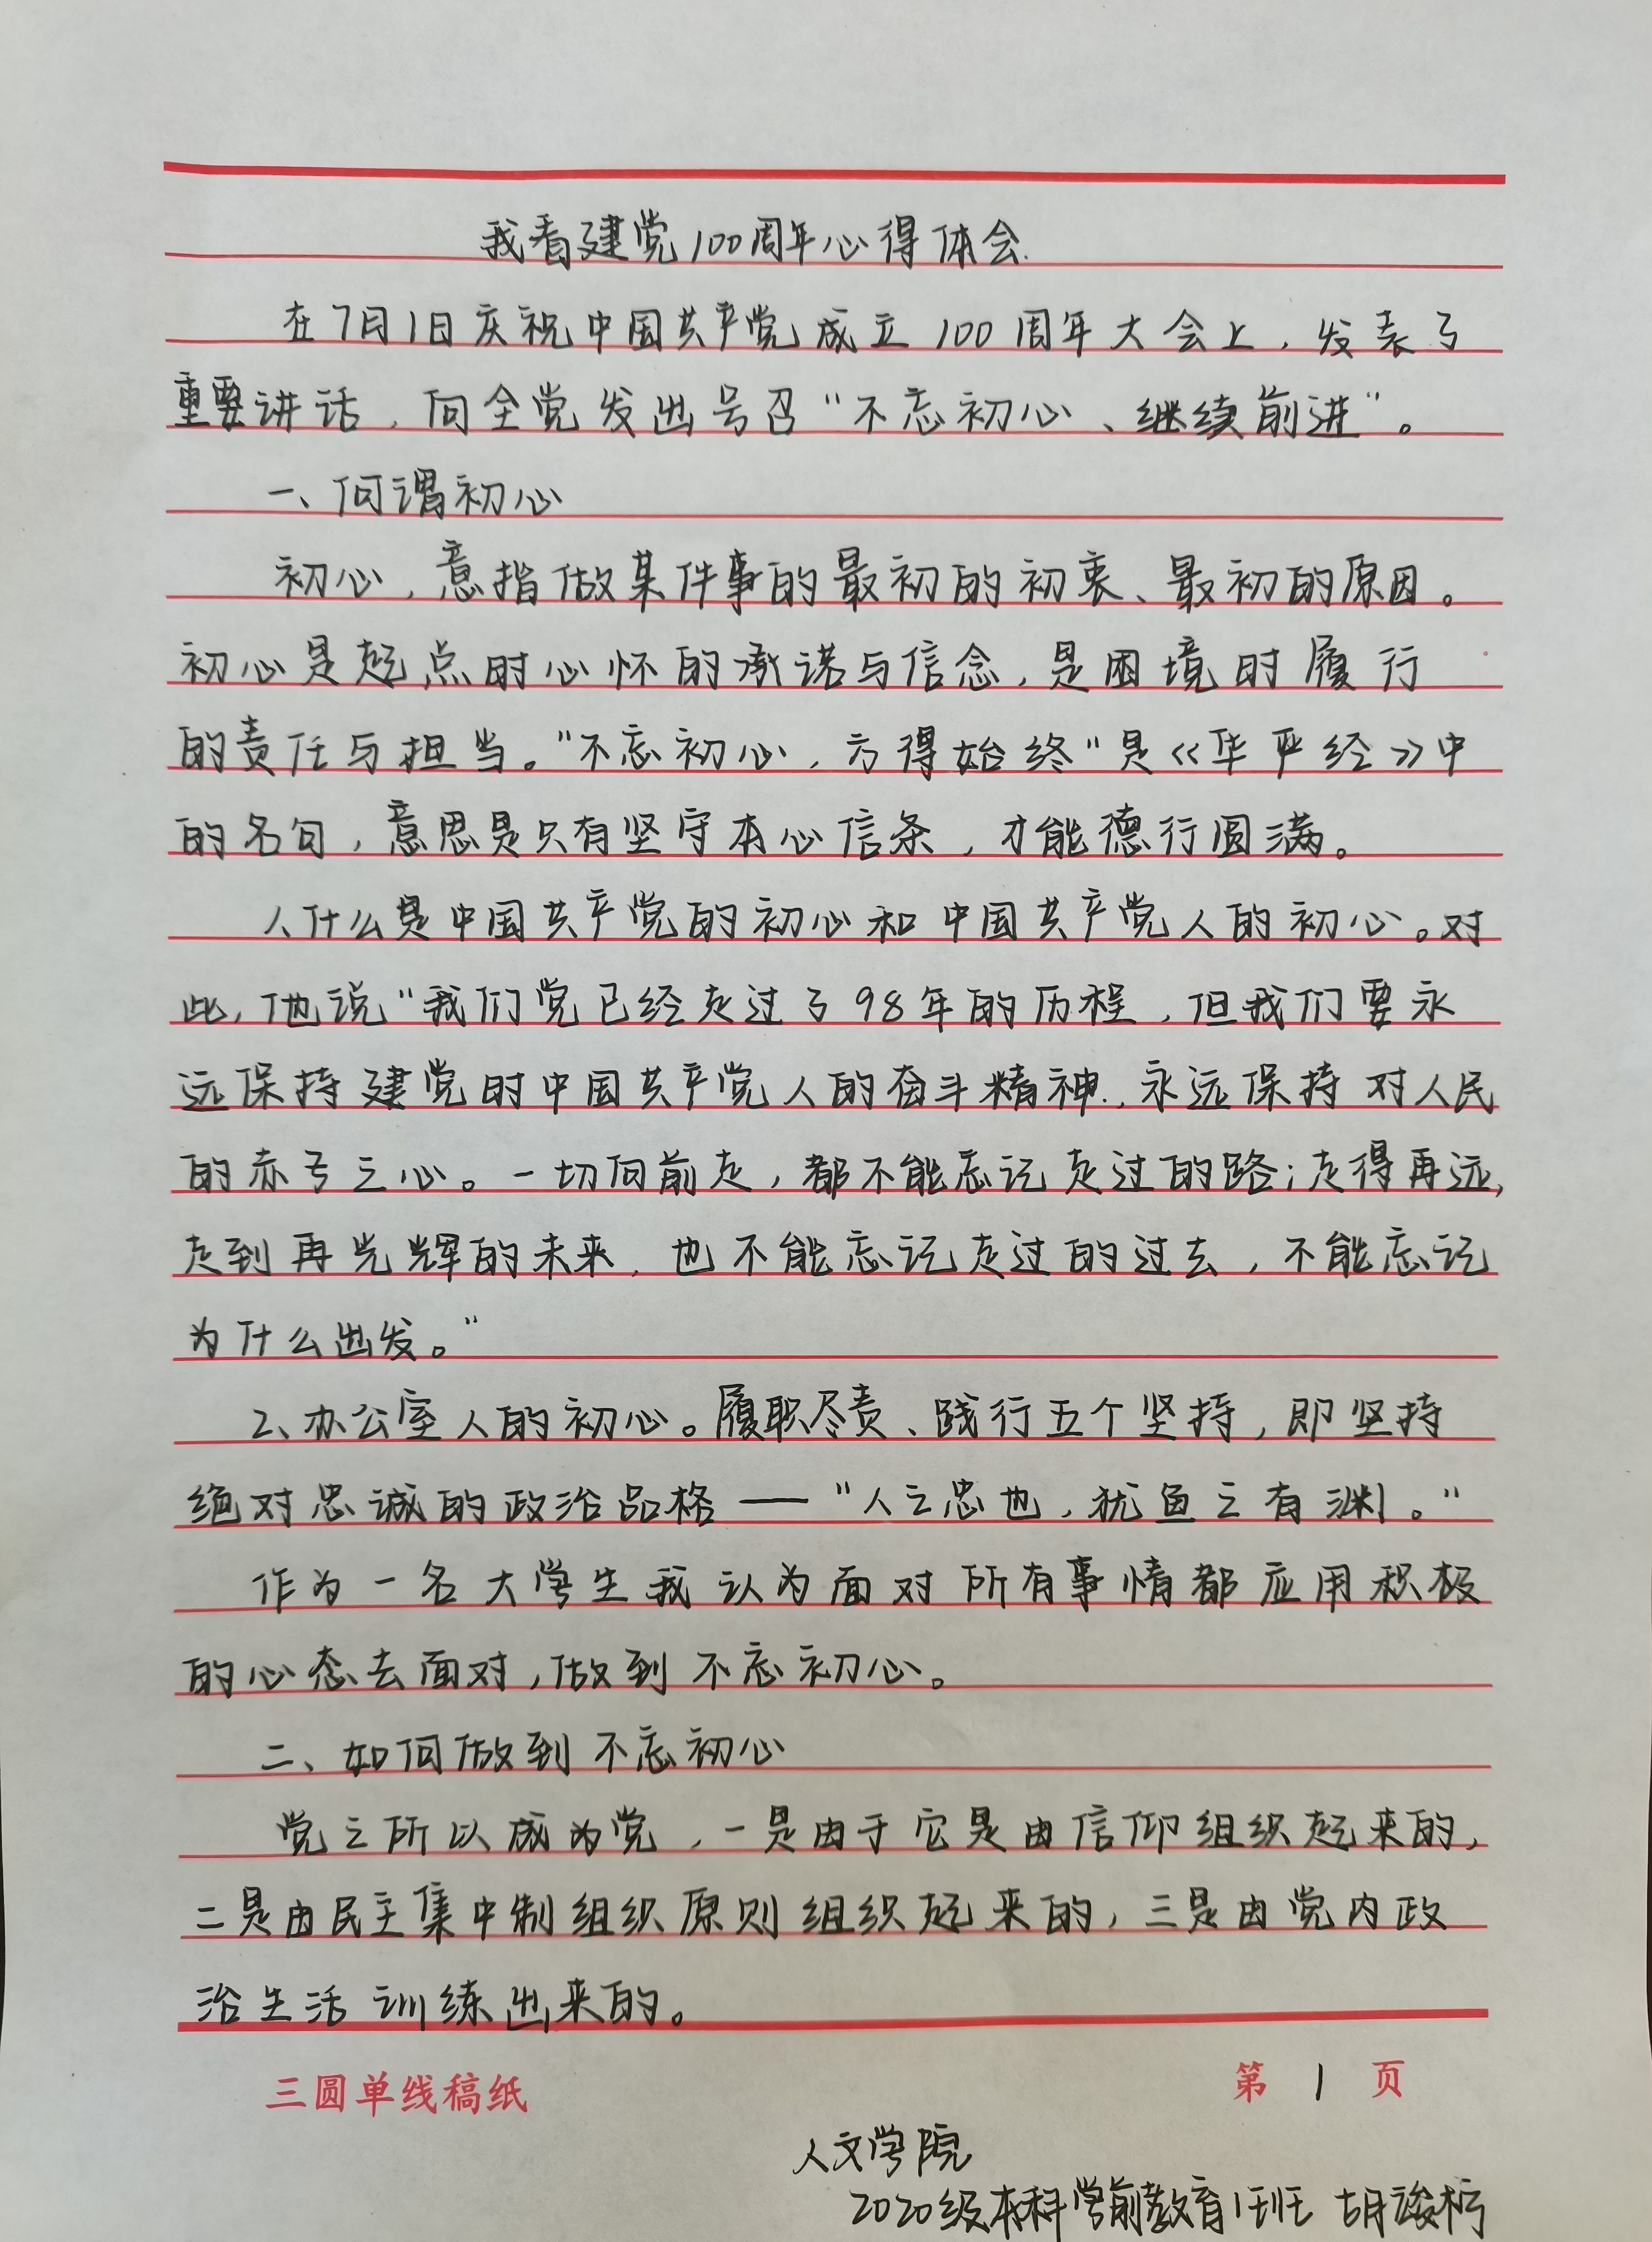 我看建党100周年心得体会.
在7月1日庆祝中国共产党成立100周年大会上，发表了
重要讲话，向全党发出号召“不忘初心、继续前进”。
一、何谓初心
初心，意指做某件事的最初的初衷、最初的原因。
初心是起点时心怀的承诺与信念，是困境时履行
的责任与担当。“不忘初心，方得始终”是《华严经》中
的名句，意思是只有坚守本心信条，才能德行圆满。
1、什么是中国共产党的初心和中国共产党人的初心。对
此，他说“我们党已经走过了98年的历程，但我们要永
远保持建党时中国共产党人的奋斗精神，永远保持对人民
的赤子之心。一切向前走，都不能忘记走过的路；走得再远，
走到再光辉的未来，也不能忘记走过的过去，不能忘记
为什么出发。”
2、办公室人的初心。履职尽责、践行五个坚持，即坚持
绝对忠诚的政治品格——“人之忠也，犹鱼之有渊。”
作为一名大学生我认为面对所有事情都应用积极
的心态去面对，做到不忘初心。
二、如何做到不忘初心
党之所以成为党，一是由于它是由信仰组织起来的，
二是由民主集中制组织原则组织起来的，三是由党内政
治生活训练出来的。
三圆单线稿纸 第 1 页
人文学院
2020级本科学前教育1班 胡